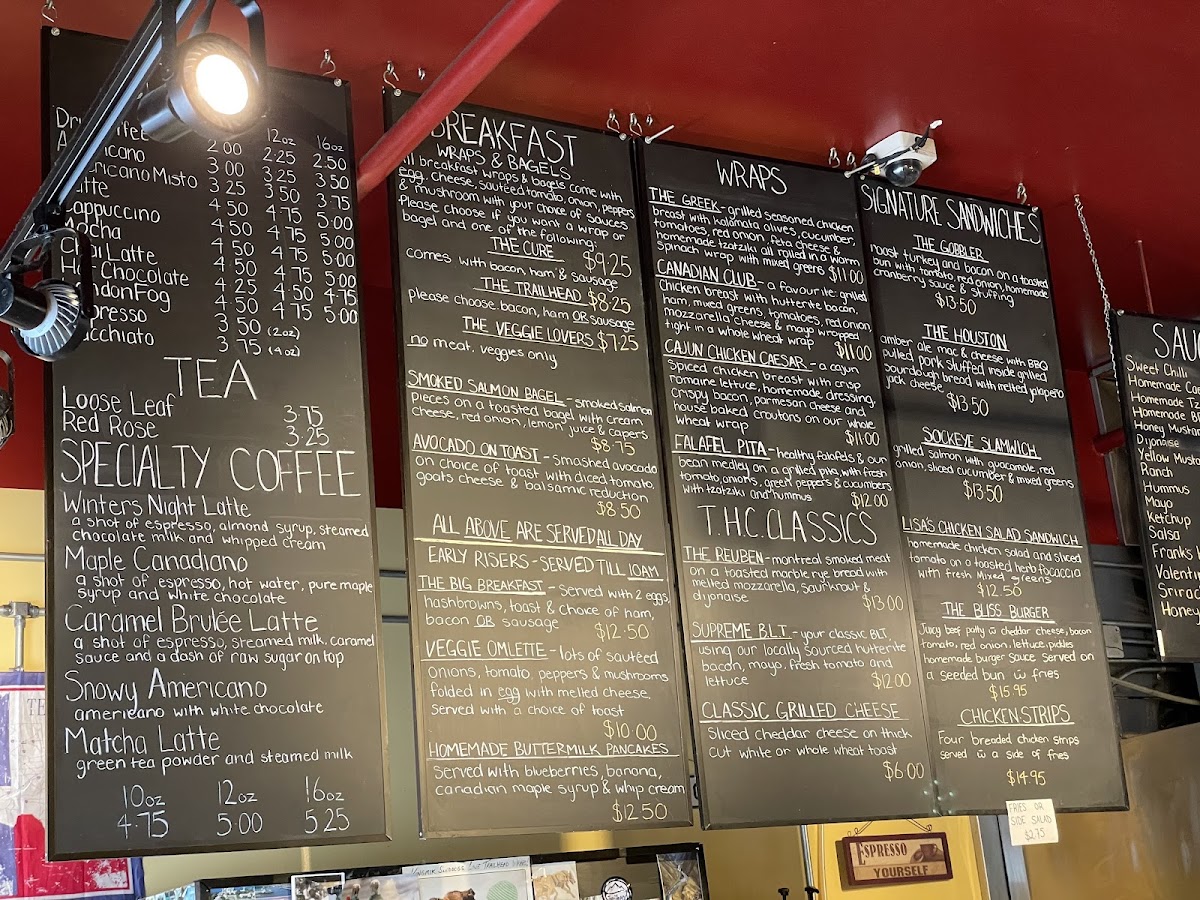 12oz 16oz
2.00 2.25 2.50
Americano 3.00 3.50 3.50
Americano Misto 3.25 3.50 3.75
Latte 4.50 4.75 5.00
Cappuccino 4.50 4.75 5.00
Mocha 4.50 4.75 5.00
Chai Latte 4.50 4.75 5.00
Hot Chocolate 4.25 4.50 4.75
London Fog 4.50 4.75 5.00
Espresso 3.50 (2oz)
Macchiato 3.75 (4oz)
TEA
Loose Leaf 3.75
Red Rose 3.25
SPECIALTY COFFEE
Winters Night Latte
a shot of espresso, almond syrup, steamed
chocolate milk and whipped cream
Maple Canadiano
a shot of espresso, hot water, pure maple
syrup and white chocolate
Caramel Brulée Latte
a shot of espresso, steamed milk, caramel
sauce and a dash of raw sugar on top
Snowy Americano
americano with white chocolate
Matcha Latte
green tea powder and steamed milk
10oz 12oz 16oz
4.75 5.00 5.25
BREAKFAST
WRAPS & BAGELS
All breakfast wraps & bagels come with
egg, cheese, sautéed tomato, onion, peppers
& mushroom with your choice of sauces
Please choose if you want a wrap or
bagel and one of the following:
THE CURE $9.25
comes with bacon, ham & sausage
THE TRAILHEAD $8.25
please choose bacon, ham OR sausage
THE VEGGIE LOVERS $7.25
no meat, veggies only
SMOKED SALMON BAGEL - smoked salmon
pieces on a toasted bagel with cream
cheese, red onion, lemon juice & capers
$8.75
AVOCADO ON TOAST - smashed avocado
on choice of toast with diced tomato,
goats cheese & balsamic reduction
$8.50
ALL ABOVE ARE SERVED ALL DAY
EARLY RISERS - SERVED TILL 10AM
THE BIG BREAKFAST - served with 2 eggs,
hashbrowns, toast & choice of ham,
bacon OR sausage $12.50
VEGGIE OMLETTE - lots of sautéed
onions, tomato, peppers & mushrooms
folded in egg with melled cheese,
served with a choice of toast
$10.00
HOMEMADE BUTTERMILK PANCAKES
served with blueberries, banana,
canadian maple syrup & whip cream
$12.50
WRAPS
THE GREEK - grilled seasoned chicken
breast with kalamata olives, cucumber,
tomatoes, red onion, feta cheese &
homemade tzatziki all rolled in a warm
spinach wrap with mixed greens $11.00
CANADIAN CLUB - a favourite: grilled
chicken breast with hutterite bacon,
ham, mixed greens, tomatoes, red onion,
mozzarella cheese & mayo wrapped
tight in a whole wheat wrap $11.00
CAJUN CHICKEN CAESAR - a cajun
spiced chicken breast with crisp
romaine lettuce, homemade dressing,
crispy bacon, parmesan cheese and
house baked croutons on our whole
wheat wrap $11.00
FALAFEL PITA - healthy falafels & our
bean medley on a grilled pita with fresh
tomato, onions, green peppers & cucumbers
with tzatziki and hummus $12.00
T.H.C. CLASSICS
THE REUBEN - montreal smoked meat
on a toasted marble rye bread with
melted mozzarella, saurkraut &
dijonaise $13.00
SUPREME B.L.T. - your classic BLT,
using our locally sourced hutterite
bacon, mayo, fresh tomato and
lettuce $12.00
CLASSIC GRILLED CHEESE
Sliced cheddar cheese on thick
cut white or whole wheat toast
$6.00
SIGNATURE SANDWICHES
THE GOBBLER
roast turkey and bacon on a toasted
bun with tomato, red onion, homemade
cranberry sauce & stuffing
$13.50
THE HOUSTON
amber ale mac & cheese with BBQ
pulled pork stuffed inside grilled
sourdough bread with melted jalapeño
jack cheese $13.50
SOCKEYE SLAMWICH
grilled salmon with guacamole, red
onion, sliced cucumber & mixed greens
$13.50
LISA'S CHICKEN SALAD SANDWICH
homemade chicken salad and sliced
tomato on a toasted herb focaccia
with fresh mixed greens
$12.50
THE BLISS BURGER
Juicy beef patty w cheddar cheese, bacon
tomato, red onion, lettuce, pickles
homemade burger sauce served on
a seeded bun w fries
$15.95
CHICKEN STRIPS
Four breaded chicken strips
served w a side of fries
$14.95
FRIES OR
SIDE SALAD
$2.75
Sweet Chili
Homemade
Homemade
Homemade
Honey Mustard
Dijonaise
Yellow Mustard
Ranch
Hummus
Mayo
Ketchup
Salsa
Frank's
ESPRESSO
YOURSELF